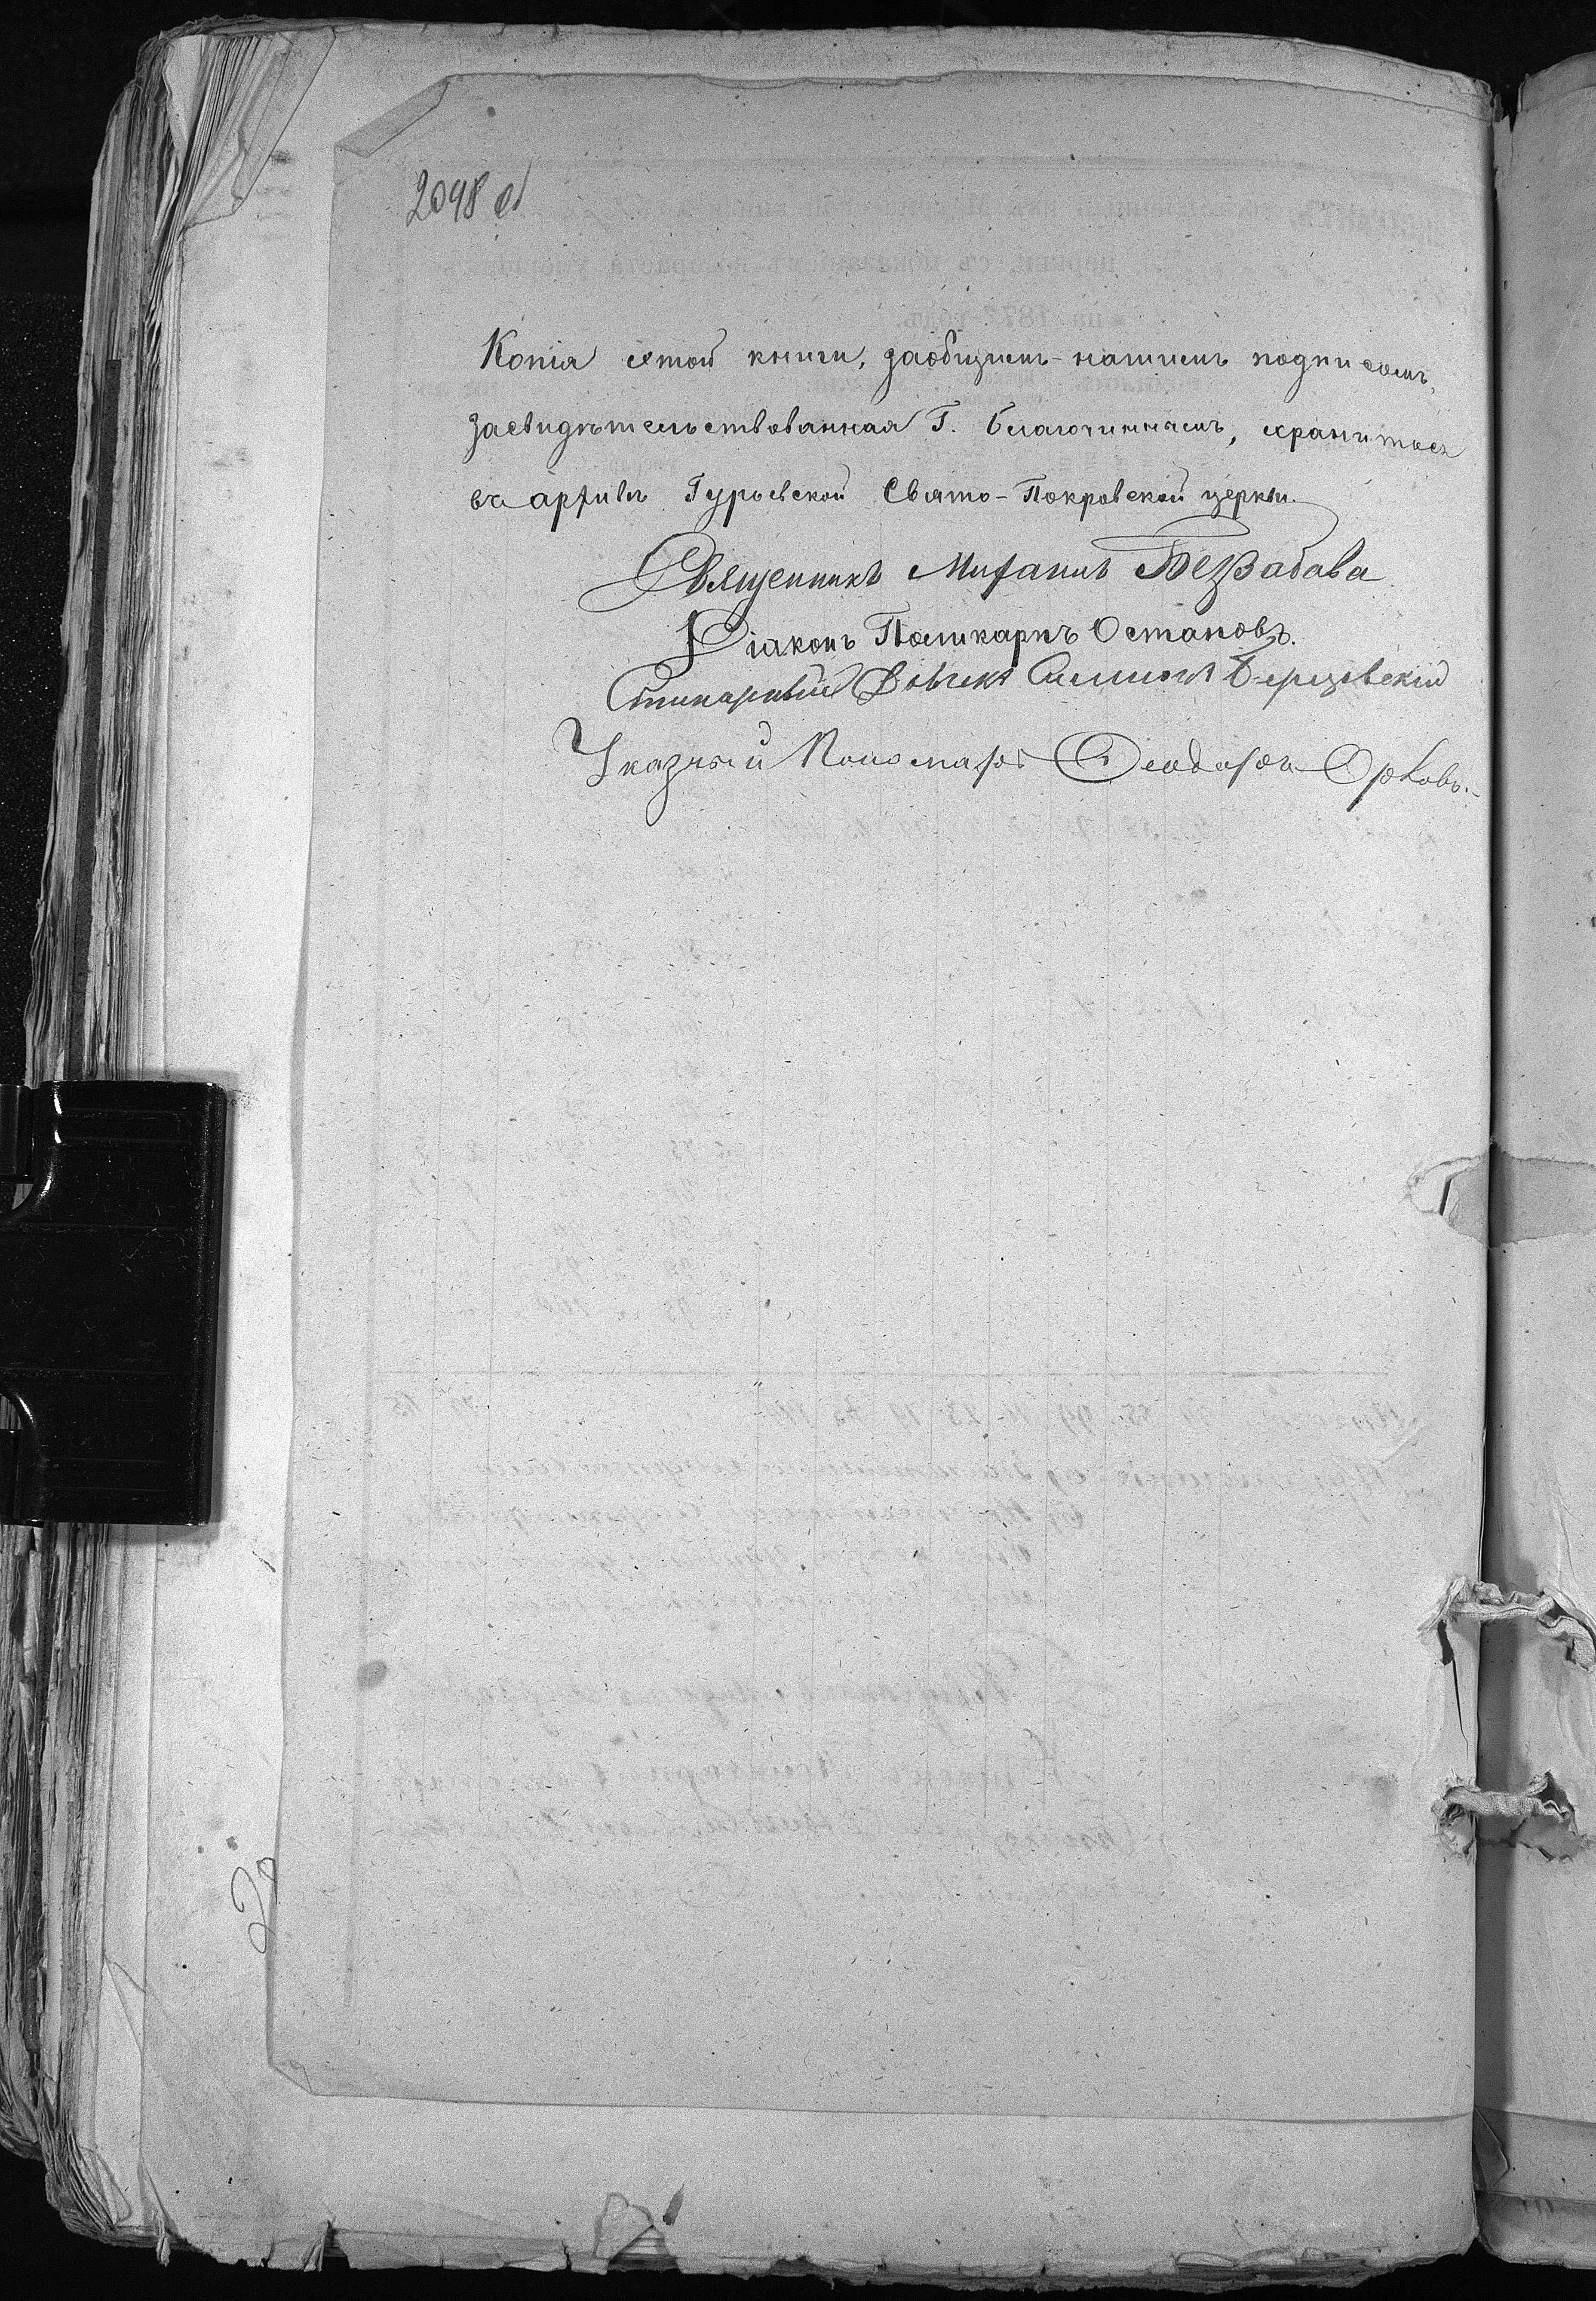 2098 об
Копія сятой книги, заобщимъ нашимъ подписомъ,
засвидѣтельствованная Г. Благочиннымъ, хранится
въ архивѣ Гурьевской Свято-Покровской церкви.
Священникъ Митафанъ Безвабава
Діаконъ Поликарпъ Остаповъ.
Стихарный Дьячекъ Симеонъ Березовскій
Указный Пономарь Ѳеодоръ Орловъ.